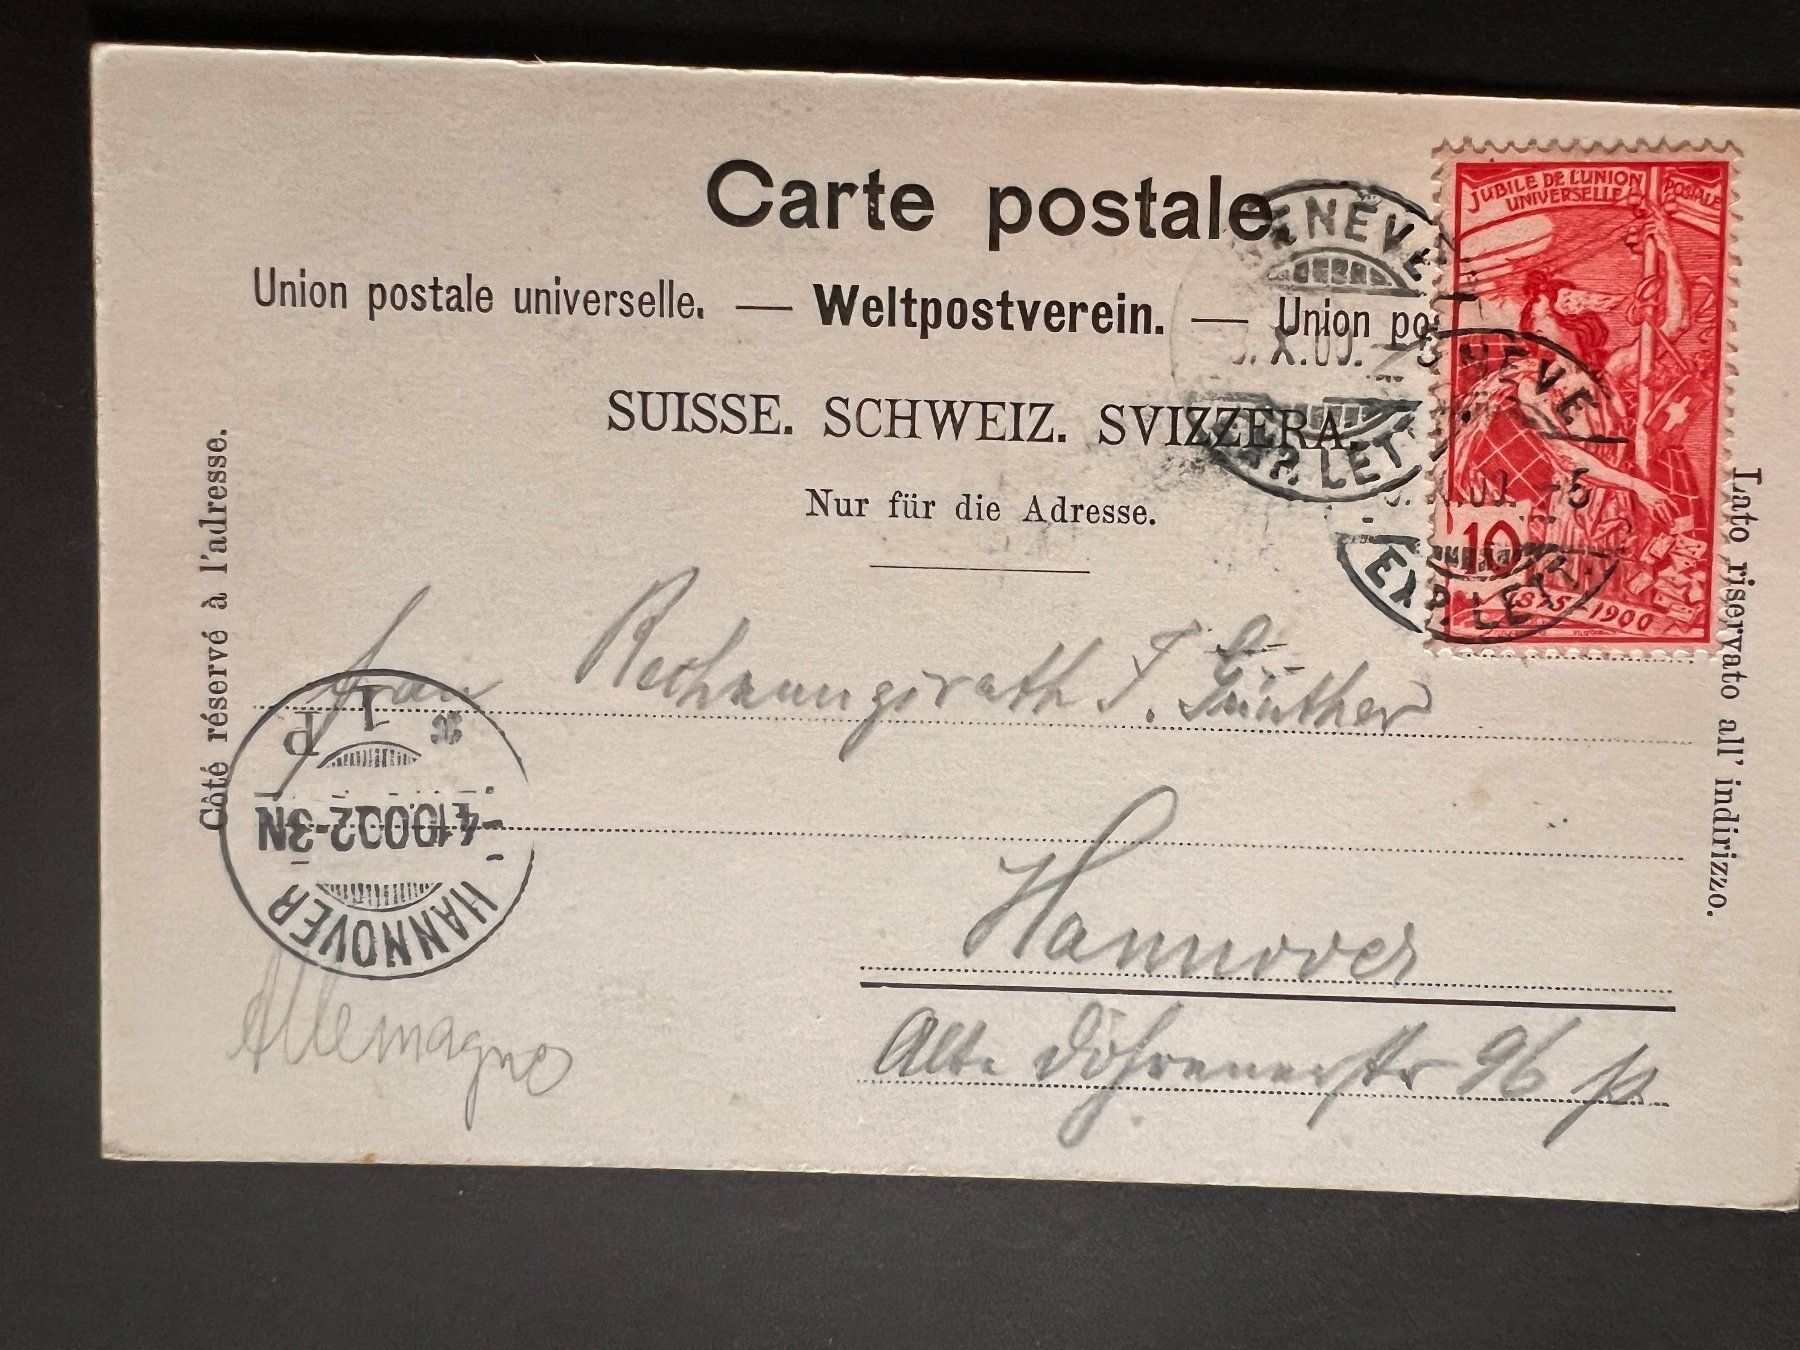 Carte postale
Union postale universelle. — Weltpostverein. — Union po
SUISSE. SCHWEIZ. SVIZZERA.
Nur für die Adresse.
Côté réservé à l'adresse.
Lato riservato all' indirizzo.
JUBILÉ DE L'UNION POSTALE
UNIVERSELLE
10
1875-1900
GENÈVE
X.00.
EXP. LETTR.
GENÈVE
EXP. LETTR.
Frau Rechnungsrath J. Günther
Hannover
Alte Döhrenerstr 96
HANNOVER
-4.10.00.2-3N
* 1 P
Allemagne